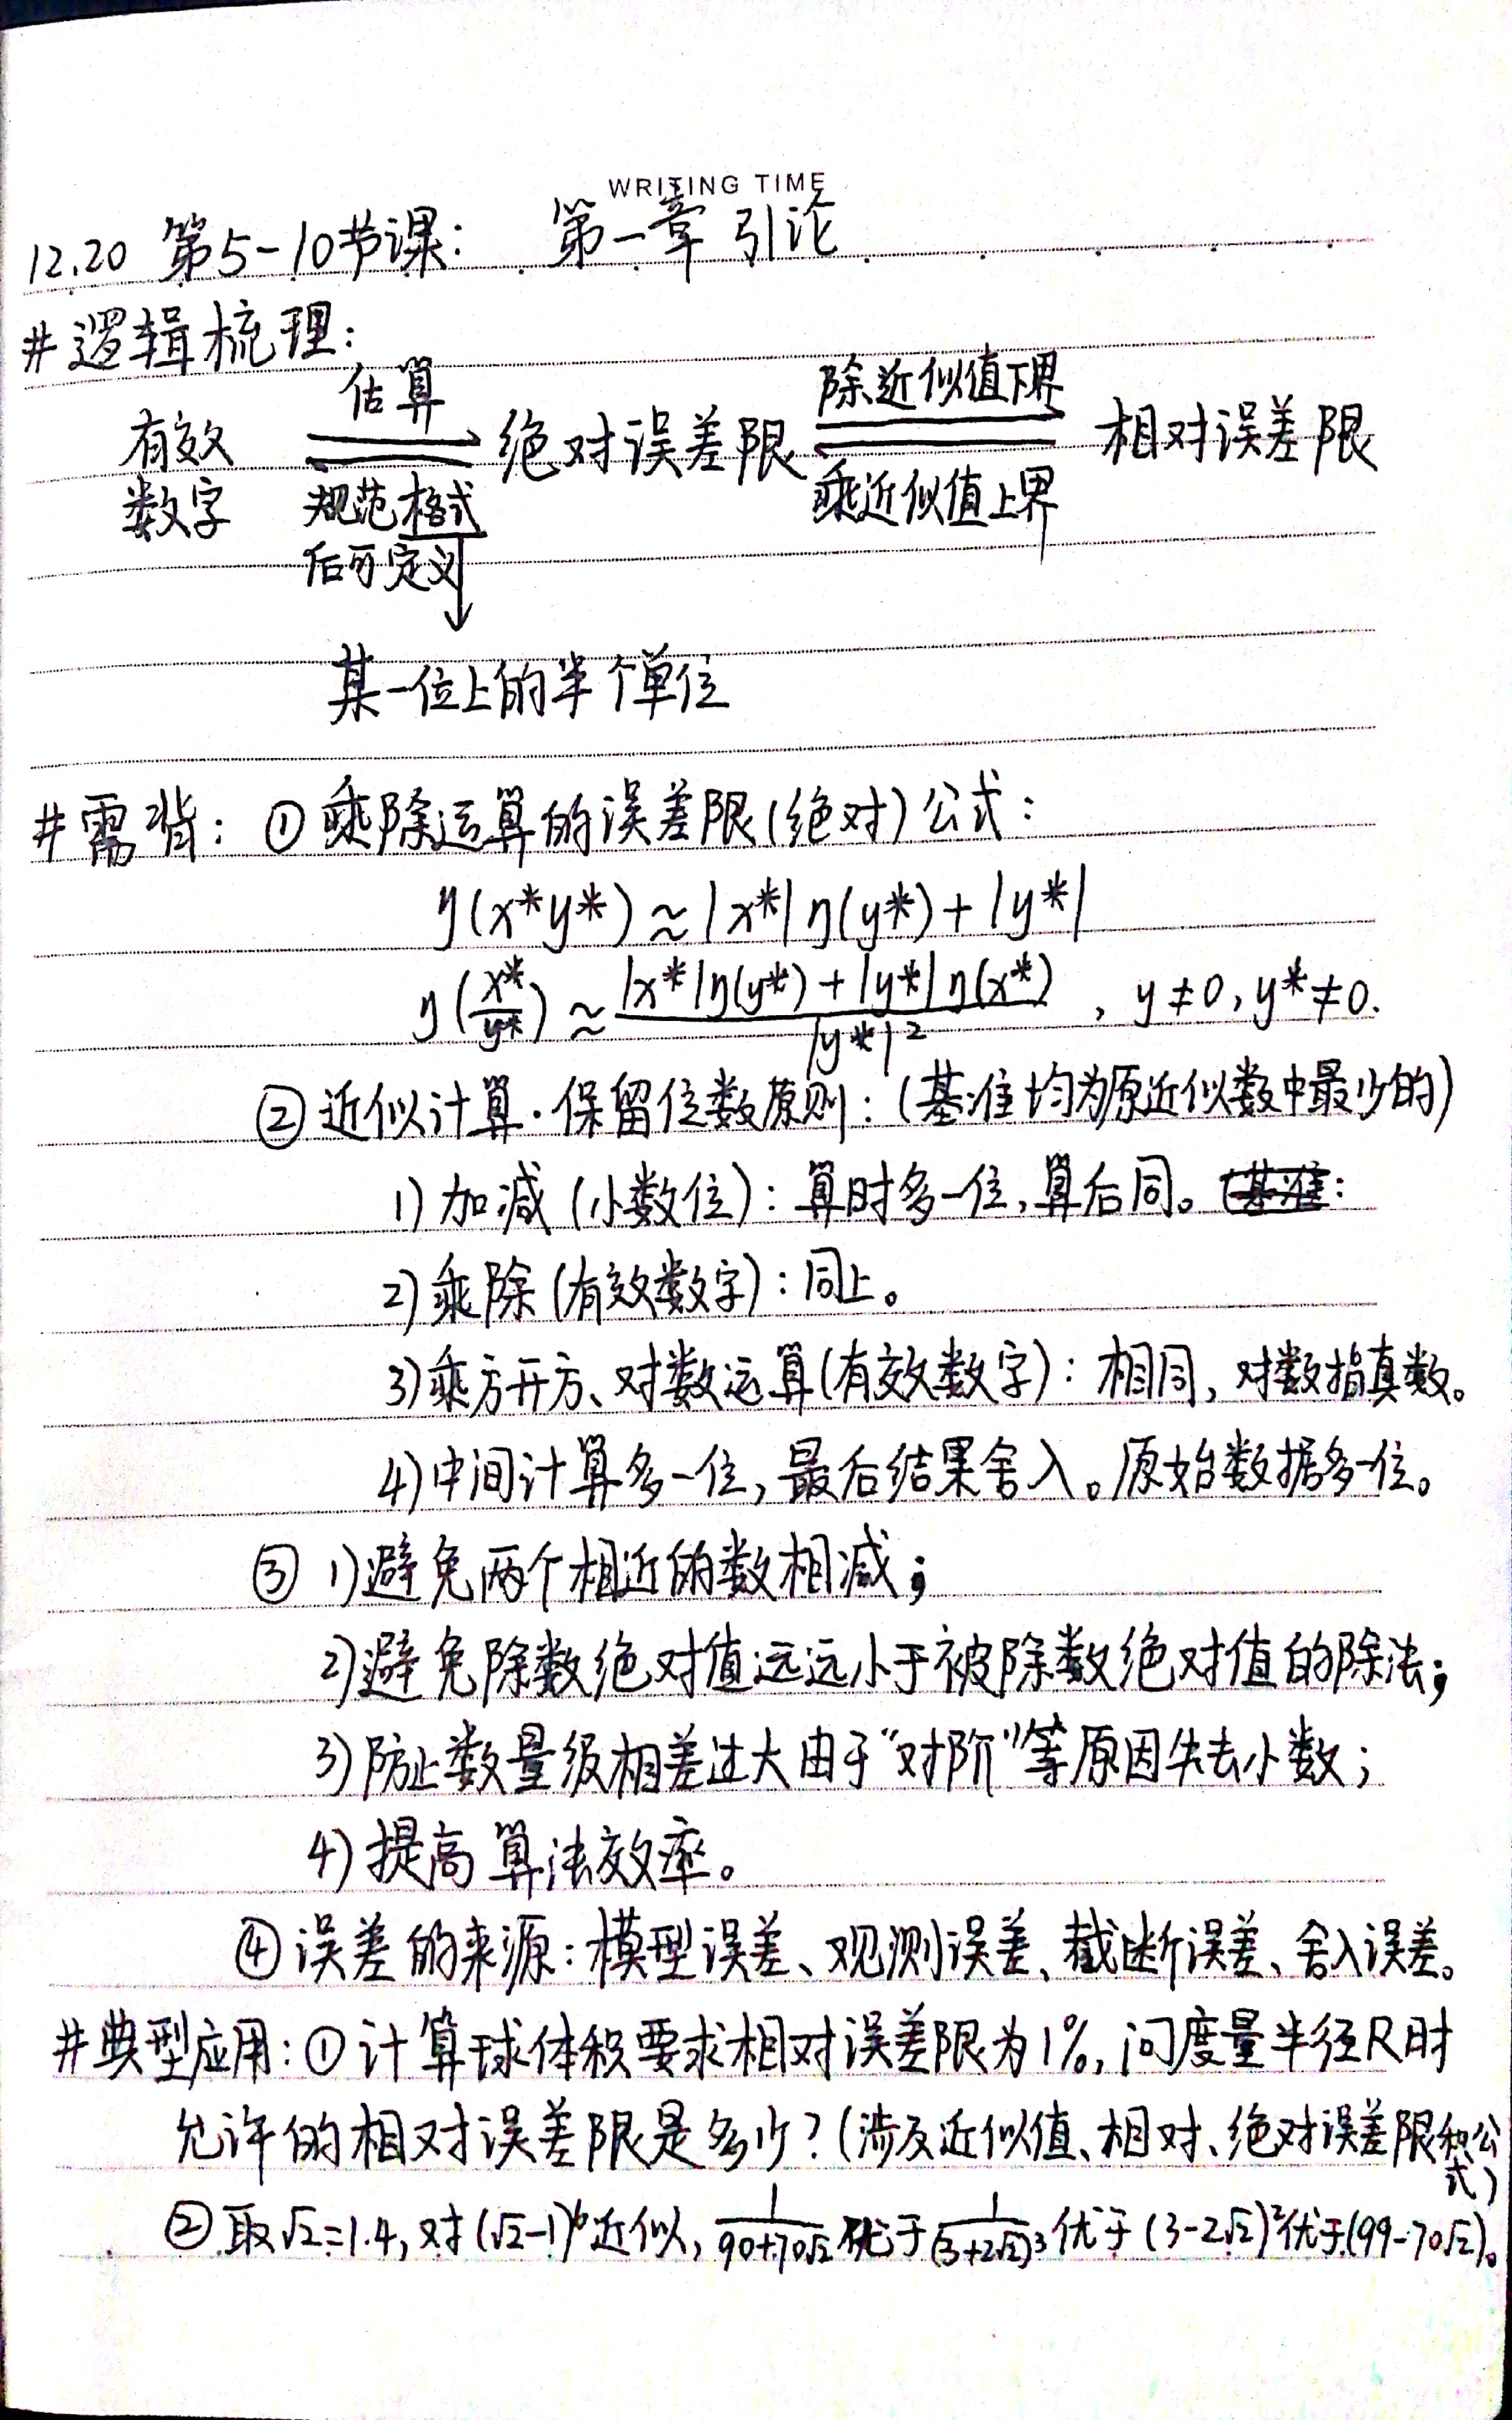 WRITING TIME
12.20 第5-10节课: 第一章 引论
#逻辑梳理:
估算 除近似值下界
有效 绝对误差限 相对误差限
数字 规范格式 乘近似值上界
后可定义
某一位上的半个单位
#需背: ①乘除运算的误差限(绝对)公式:
η(x*y*)≈|x*|η(y*)+|y*|
η(x*/y*)≈(|x*|η(y*)+|y*|η(x*))/|y*|², y≠0, y*≠0.
②近似计算·保留位数原则:(基准均为原近似数中最少的)
1)加减(小数位):算时多一位,算后同。
2)乘除(有效数字):同上。
3)乘方开方、对数运算(有效数字):相同,对数指真数。
4)中间计算多一位,最后结果舍入。原始数据多一位。
③ 1)避免两个相近的数相减;
2)避免除数绝对值远远小于被除数绝对值的除法;
3)防止数量级相差过大由于“对阶”等原因失去小数;
4)提高算法效率。
④误差的来源:模型误差、观测误差、截断误差、舍入误差。
#典型应用:①计算球体积要求相对误差限为1%,问度量半径R时
允许的相对误差限是多少?(涉及近似值、相对、绝对误差限和公式)
②取√2=1.4,对(√2-1)⁶近似, 1/(90+70√2) 优于 1/(3+2√2)³ 优于 (3-2√2)³优于(99-70√2)。